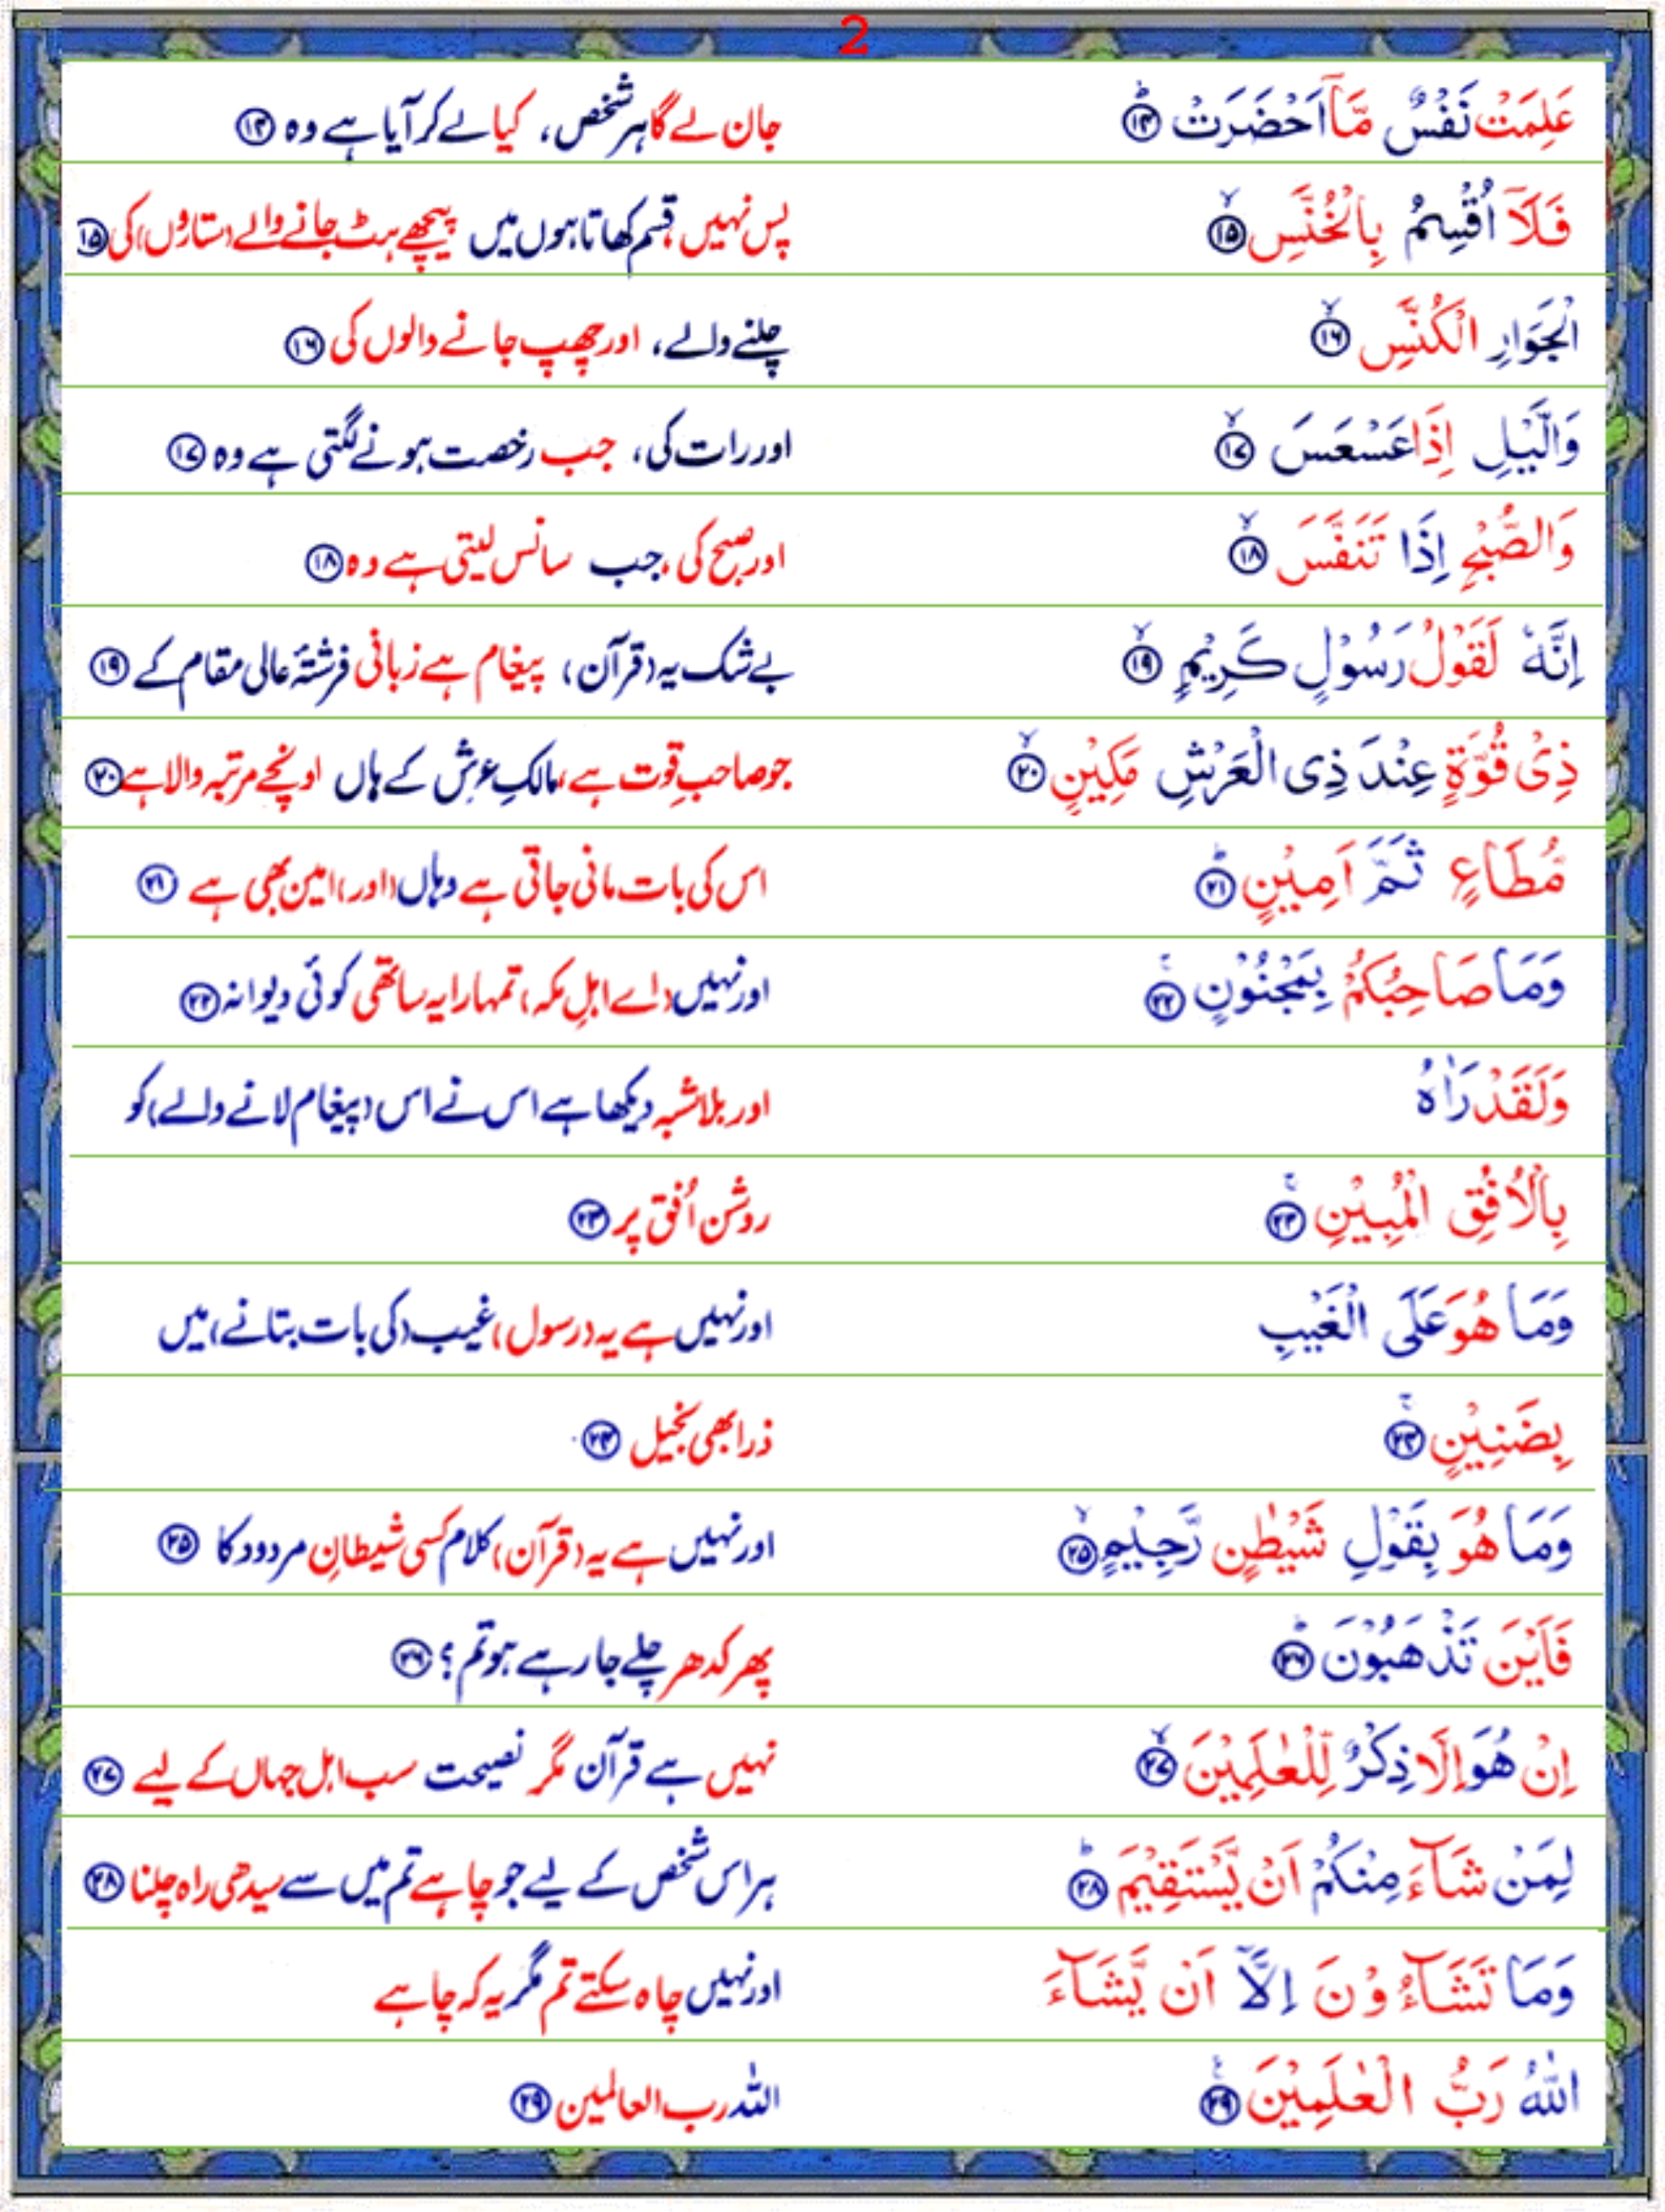 2
عَلِمَتْ نَفْسٌ مَّاۤ اَحْضَرَتْ ؕ۝۱۴ جان لے گا ہر شخص، کیا لے کر آیا ہے وہ ۝۱۴
فَلَاۤ اُقْسِمُ بِالْخُنَّسِ ۙ۝۱۵ پس نہیں، قسم کھاتا ہوں میں پیچھے ہٹ جانے والے (ستاروں) کی ۝۱۵
الْجَوَارِ الْكُنَّسِ ۙ۝۱۶ چلنے والے، اور چھپ جانے والوں کی ۝۱۶
وَالَّيْلِ اِذَا عَسْعَسَ ۙ۝۱۷ اور رات کی، جب رخصت ہونے لگتی ہے وہ ۝۱۷
وَالصُّبْحِ اِذَا تَنَفَّسَ ۙ۝۱۸ اور صبح کی، جب سانس لیتی ہے وہ ۝۱۸
اِنَّهٗ لَقَوْلُ رَسُوْلٍ كَرِيْمٍ ۙ۝۱۹ بے شک یہ (قرآن) پیغام ہے زبانی فرشتۂ عالی مقام کے ۝۱۹
ذِىْ قُوَّةٍ عِنْدَ ذِى الْعَرْشِ مَكِيْنٍ ۙ۝۲۰ جو صاحبِ قوت ہے، مالکِ عرش کے ہاں اونچے مرتبہ والا ہے ۝۲۰
مُّطَاعٍ ثَمَّ اَمِيْنٍ ؕ۝۲۱ اس کی بات مانی جاتی ہے وہاں (اور) امین بھی ہے ۝۲۱
وَمَا صَاحِبُكُمْ بِمَجْنُوْنٍ ۚ۝۲۲ اور نہیں (اے اہلِ مکہ) تمہارا یہ ساتھی کوئی دیوانہ ۝۲۲
وَلَقَدْ رَاٰهُ اور بلاشبہ دیکھا ہے اس نے اس (پیغام لانے والے) کو
بِالْاُفُقِ الْمُبِيْنِ ۚ۝۲۳ روشن اُفق پر ۝۲۳
وَمَا هُوَ عَلَى الْغَيْبِ اور نہیں ہے یہ (رسول) غیب (کی بات بتانے) میں
بِضَنِيْنٍ ۚ۝۲۴ ذرا بھی بخیل ۝۲۴
وَمَا هُوَ بِقَوْلِ شَيْطٰنٍ رَّجِيْمٍ ۙ۝۲۵ اور نہیں ہے یہ (قرآن) کلام کسی شیطانِ مردود کا ۝۲۵
فَاَيْنَ تَذْهَبُوْنَ ؕ۝۲۶ پھر کدھر چلے جا رہے ہو تم؟ ۝۲۶
اِنْ هُوَ اِلَّا ذِكْرٌ لِّلْعٰلَمِيْنَ ۙ۝۲۷ نہیں ہے قرآن مگر نصیحت سب اہل جہاں کے لیے ۝۲۷
لِمَنْ شَآءَ مِنْكُمْ اَنْ يَّسْتَقِيْمَ ؕ۝۲۸ ہر اس شخص کے لیے جو چاہے تم میں سے سیدھی راہ چلنا ۝۲۸
وَمَا تَشَآءُوْنَ اِلَّاۤ اَنْ يَّشَآءَ اور نہیں چاہ سکتے تم مگر یہ کہ چاہے
اللّٰهُ رَبُّ الْعٰلَمِيْنَ ۠۝۲۹ اللہ رب العالمین ۝۲۹